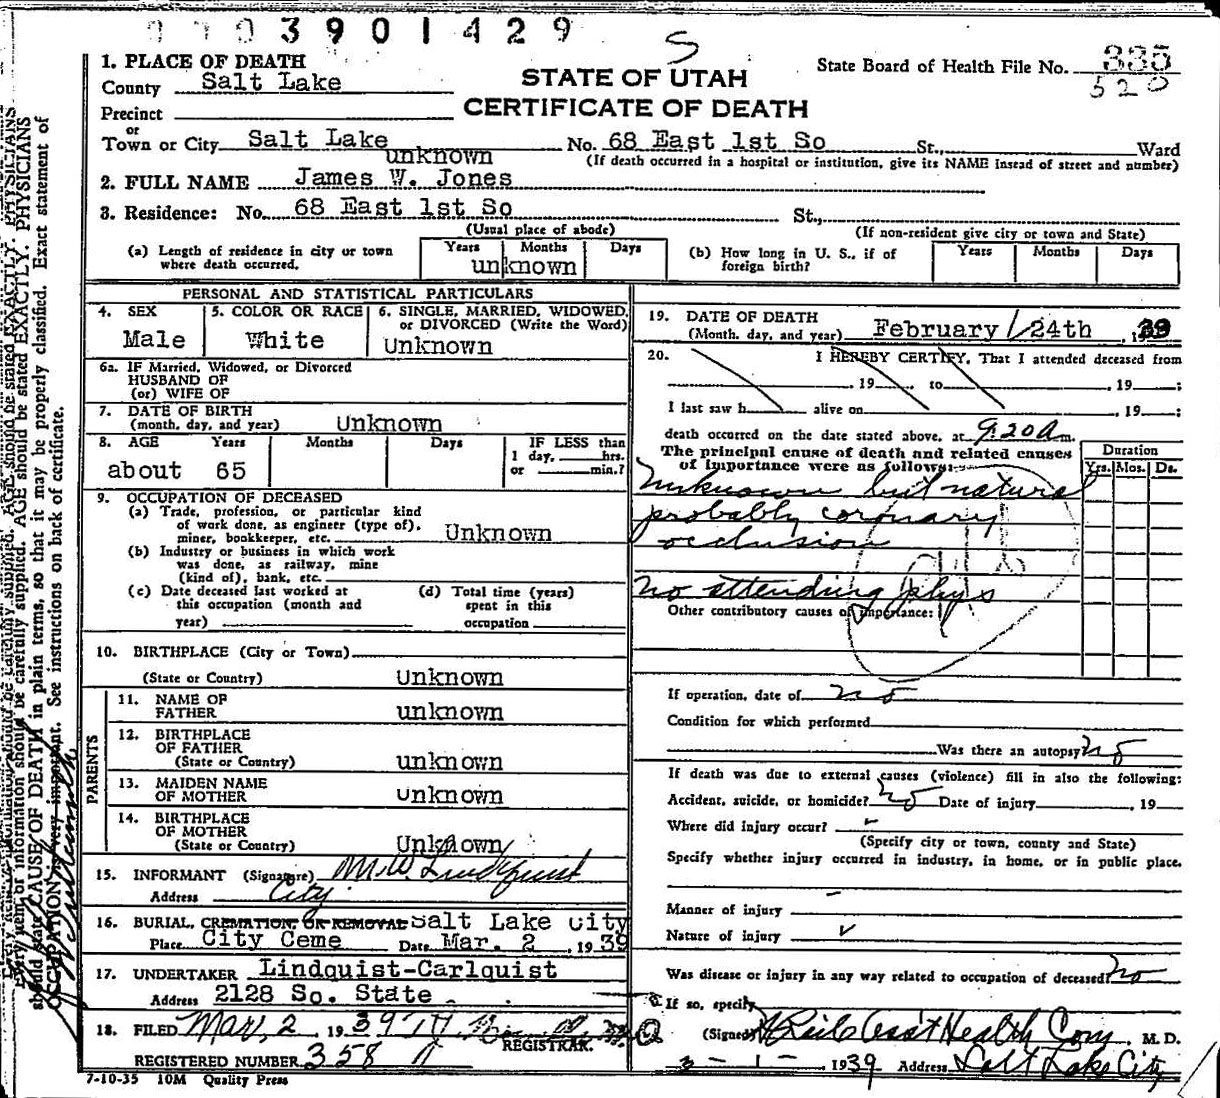 3901429
S
1. PLACE OF DEATH
County Salt Lake
STATE OF UTAH
CERTIFICATE OF DEATH
State Board of Health File No. 335
520
Precinct
or
Town or City Salt Lake No. 68 East 1st So St., Ward
unknown
(If death occurred in a hospital or institution, give its NAME insead of street and number)
2. FULL NAME James W. Jones
3. Residence: No. 68 East 1st So St.,
(Usual place of abode)
(If non-resident give city or town and State)
(a) Length of residence in city or town where death occurred.
Years Months Days
unknown
(b) How long in U. S., if of foreign birth?
Years Months Days
PERSONAL AND STATISTICAL PARTICULARS
4. SEX
Male
5. COLOR OR RACE
White
6. SINGLE, MARRIED, WIDOWED, or DIVORCED (Write the Word)
Unknown
6a. IF Married, Widowed, or Divorced
HUSBAND OF
(or) WIFE OF
7. DATE OF BIRTH
(month, day, and year) Unknown
8. AGE Years Months Days
about 65
IF LESS than
1 day, hrs.
or min.?
9. OCCUPATION OF DECEASED
(a) Trade, profession, or particular kind
of work done, as engineer (type of),
miner, bookkeeper, etc. Unknown
(b) Industry or business in which work
was done, as railway, mine
(kind of), bank, etc.
(c) Date deceased last worked at
this occupation (month and
year)
(d) Total time (years)
spent in this
occupation
10. BIRTHPLACE (City or Town)
(State or Country) Unknown
PARENTS
11. NAME OF
FATHER unknown
12. BIRTHPLACE
OF FATHER
(State or Country) unknown
13. MAIDEN NAME
OF MOTHER unknown
14. BIRTHPLACE
OF MOTHER
(State or Country) Unknown
15. INFORMANT (Signature) M. W. Lindquist
Address City
16. BURIAL, CREMATION, OR REMOVAL Salt Lake City
Place City Ceme Date Mar. 2, 1939
17. UNDERTAKER Lindquist-Carlquist
Address 2128 So. State
18. FILED Mar. 2, 1939
REGISTRAR.
REGISTERED NUMBER 358
7-10-35 10M Quality Press
19. DATE OF DEATH
(Month, day, and year) February 24th, 1939
20. I HEREBY CERTIFY, That I attended deceased from
, 19 , to , 19 ;
I last saw h alive on , 19 ;
death occurred on the date stated above, at 9.20 A m.
The principal cause of death and related causes
of importance were as follows:
Duration
Yrs. Mos. Ds.
Unknown but natural
probably coronary
occlusion
No attending phys
Other contributory causes of importance:
If operation, date of no
Condition for which performed
Was there an autopsy no
If death was due to external causes (violence) fill in also the following:
Accident, suicide, or homicide? no Date of injury , 19
Where did injury occur?
(Specify city or town, county and State)
Specify whether injury occurred in industry, in home, or in public place.
Manner of injury
Nature of injury
Was disease or injury in any way related to occupation of deceased? no
If so, specify
(Signed) Asst Health Com M. D.
3-1-, 1939 Address Salt Lake City
should state CAUSE OF DEATH in plain terms, so that it may be properly classified. Exact statement of
OCCUPATION is very important. See instructions on back of certificate.